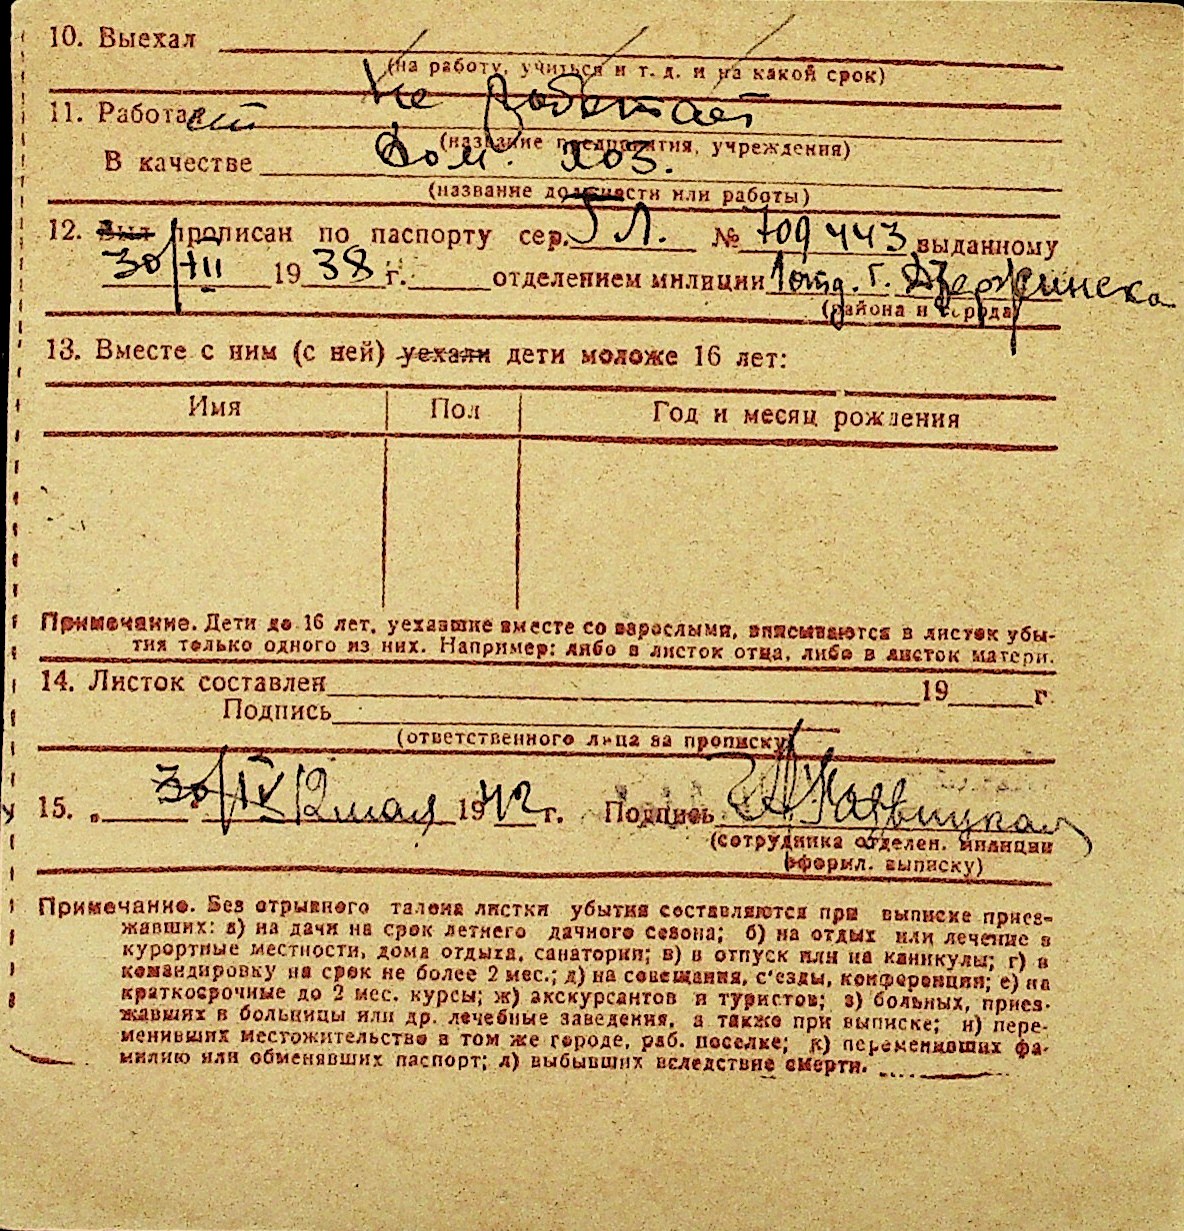 10. Выехал
(на работу, учиться и т. д. и на какой срок)
Не работает
11. Работает
(название предприятия, учреждения)
В качестве Дом. хоз.
(название должности или работы)
12. Был прописан по паспорту сер. № 709443 выданному
30/III 1938 г. отделением милиции 1 отд. г. Дзержинска
(района и города)
13. Вместе с ним (с ней) уехали дети моложе 16 лет:
Имя Пол Год и месяц рождения
Примечание. Дети до 16 лет, уехавшие вместе со взрослыми, вписываются в листок убы-
тия только одного из них. Например: либо в листок отца, либо в листок матери.
14. Листок составлен 19 г.
Подпись
(ответственного лица за прописку)
15. „ 30/IV 2 мая 1942 г. Подпись
(сотрудника отделен. милиции
оформил. выписку)
Примечание. Без отрывного талона листки убытия составляются при выписке приез-
жавших: а) на дачи на срок летнего дачного сезона; б) на отдых или лечение в
курортные местности, дома отдыха, санатории; в) в отпуск или на каникулы; г) в
командировку на срок не более 2 мес.; д) на совещания, с'езды, конференции; е) на
краткосрочные до 2 мес. курсы; ж) экскурсантов и туристов; з) больных, приез-
жавших в больницы или др. лечебные заведения, а также при выписке; и) пере-
менивших местожительство в том же городе, раб. поселке; к) переменивших фа-
милию или обменявших паспорт; л) выбывших вследствие смерти.